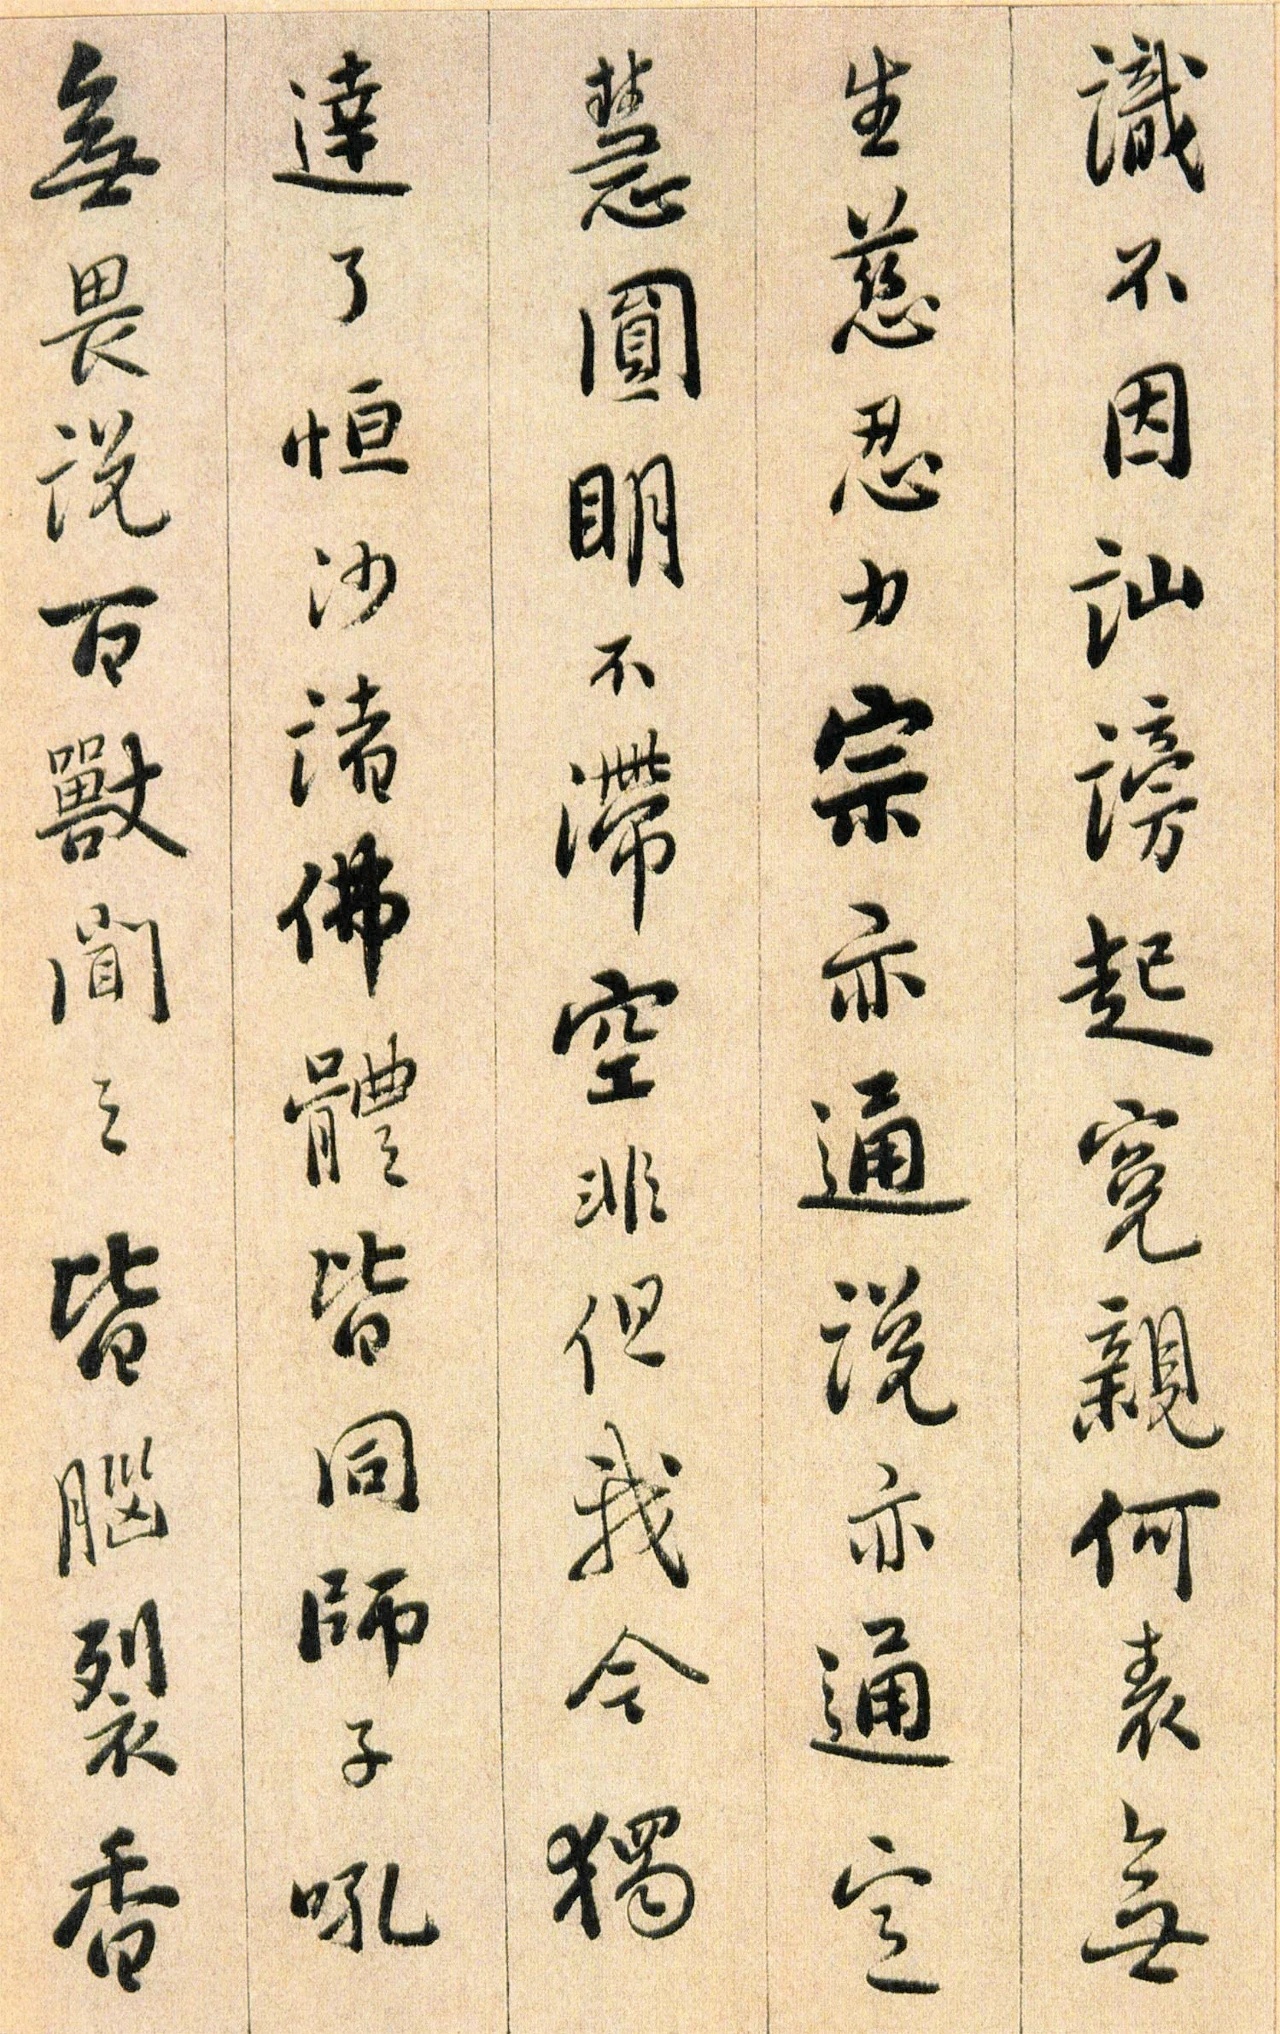 識不因訕謗起寃親何表無
生慈忍力宗亦通説亦通定
慧圓明不滯空非但我今獨
達了恒沙諸佛體皆同師子吼
無畏説百獸聞之皆腦裂香